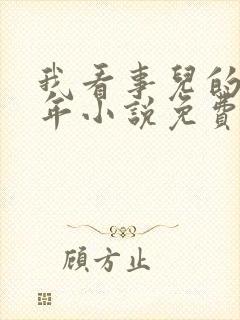 我看事兒的
年小說免費
顧方止